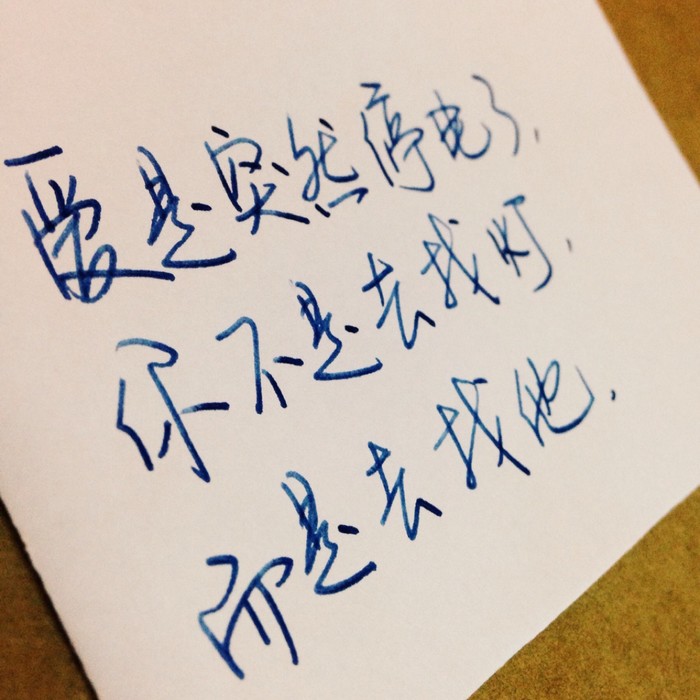 要是突然停电了,
你不是去找灯,
而是去找他.